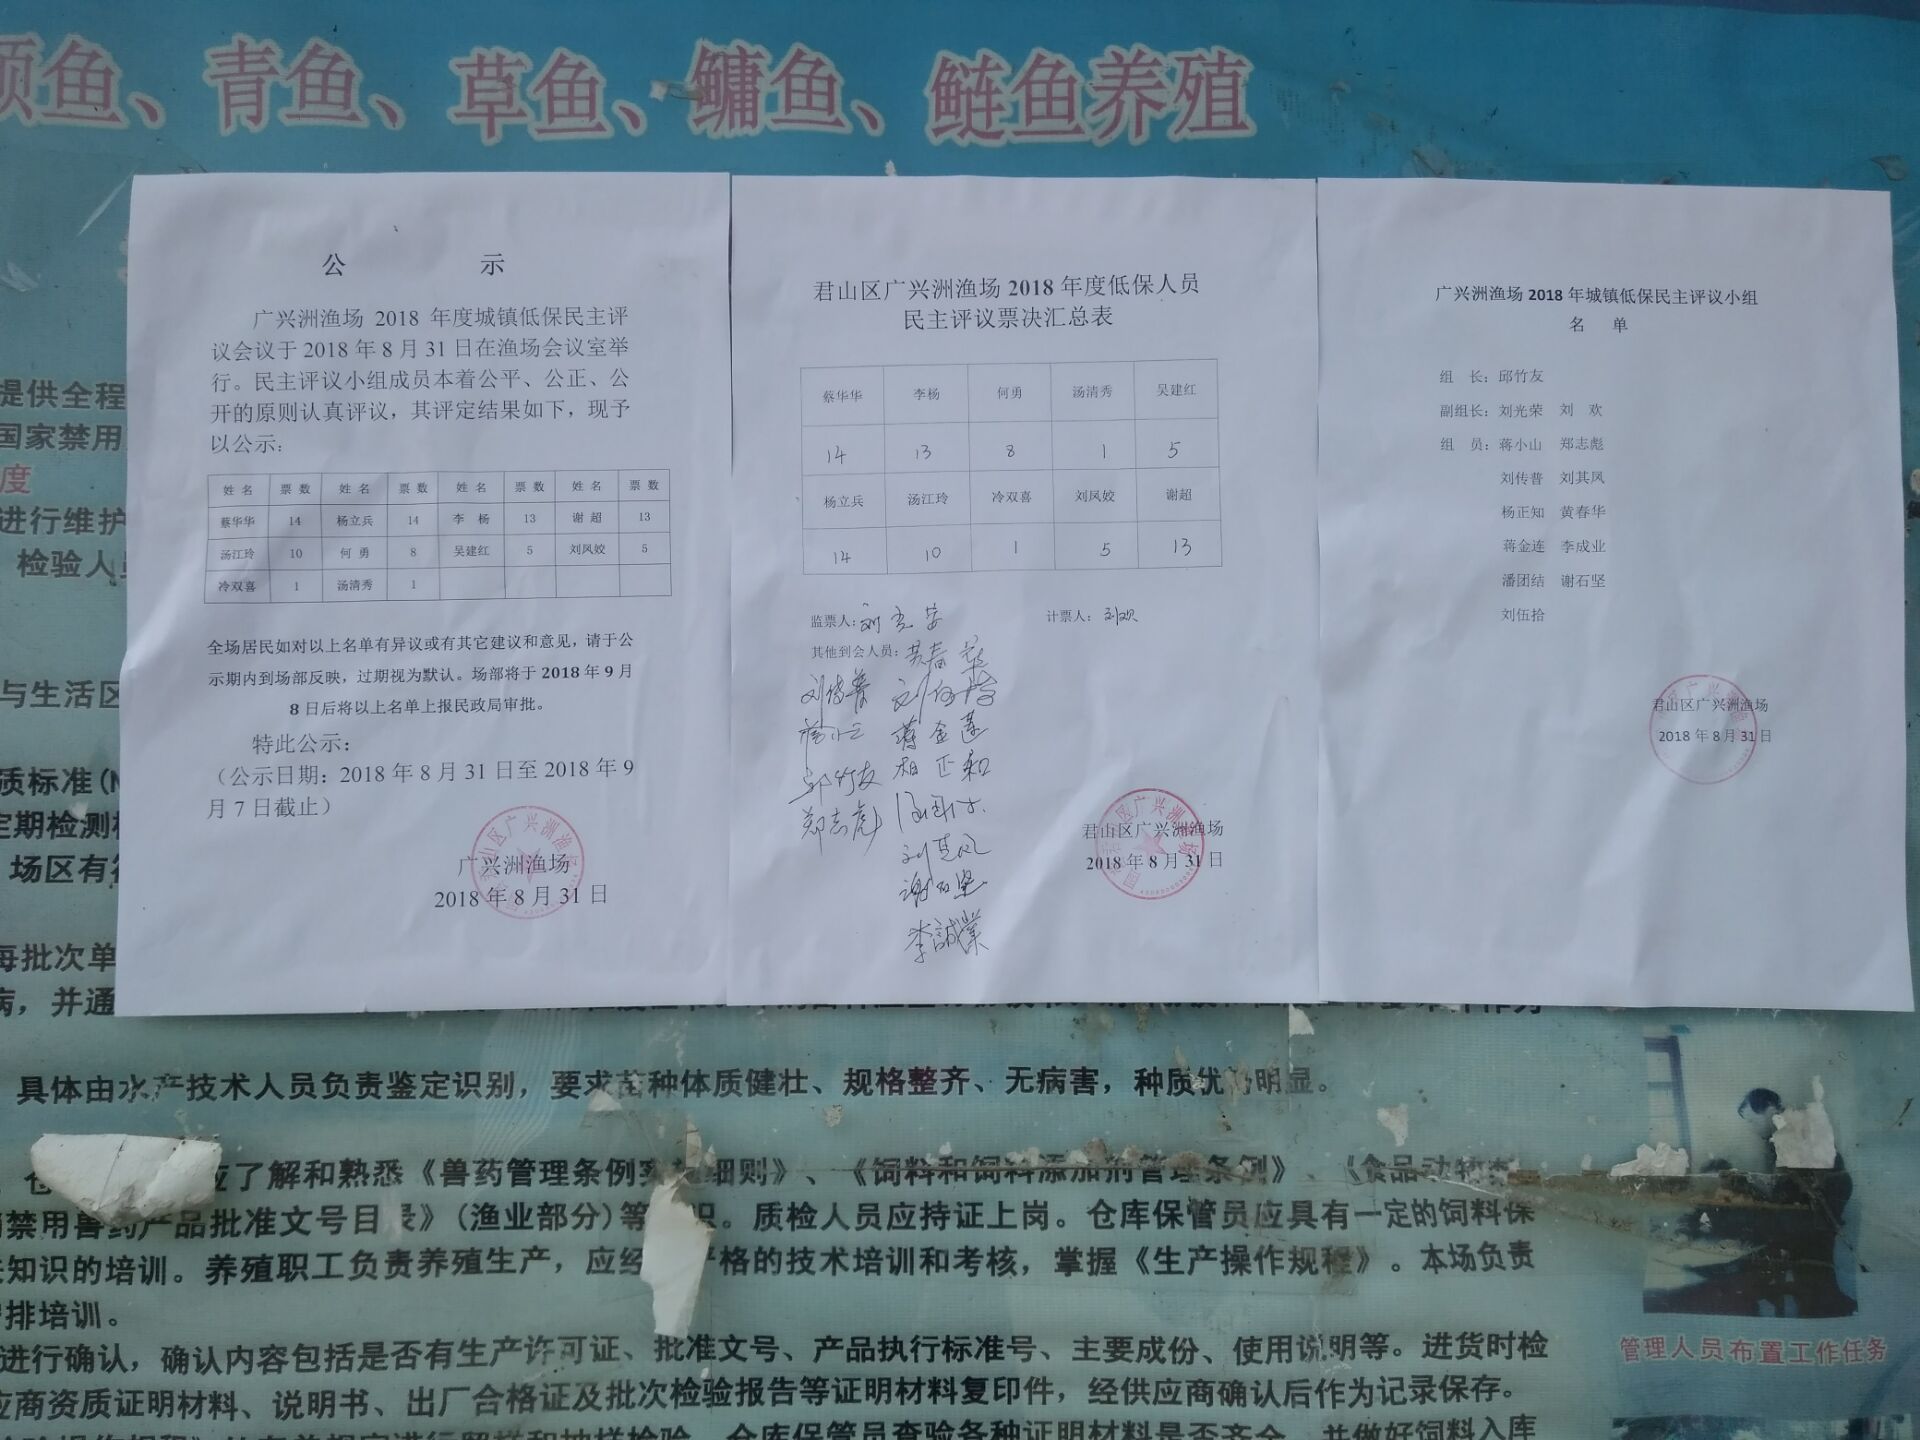 颡鱼、青鱼、草鱼、鳙鱼、鲢鱼养殖
公 示
广兴洲渔场 2018 年度城镇低保民主评
议会议于 2018 年 8 月 31 日在渔场会议室举
行。民主评议小组成员本着公平、公正、公
开的原则认真评议，其评定结果如下，现予
以公示：
姓 名 票 数 姓 名 票 数 姓 名 票 数 姓 名 票 数
蔡华华 14 杨立兵 14 李 杨 13 谢 超 13
汤江玲 10 何 勇 8 吴建红 5 刘凤姣 5
冷双喜 1 汤清秀 1
全场居民如对以上名单有异议或有其它建议和意见，请于公
示期内到场部反映，过期视为默认。场部将于 2018 年 9 月
8 日后将以上名单上报民政局审批。
特此公示：
（公示日期：2018 年 8 月 31 日至 2018 年 9
月 7 日截止）
广兴洲渔场
2018 年 8 月 31 日
君山区广兴洲渔场 2018 年度低保人员
民主评议票决汇总表
蔡华华 李杨 何勇 汤清秀 吴建红
14 13 8 1 5
杨立兵 汤江玲 冷双喜 刘凤姣 谢超
14 10 1 5 13
监票人：刘光荣 计票人：刘欢
其他到会人员：黄春华
刘传普 刘伍拾
蒋小山 蒋金莲
邱竹友 杨正知
郑志彪
刘其凤
谢石坚
李誠業
君山区广兴洲渔场
2018 年 8 月 31 日
广兴洲渔场 2018 年城镇低保民主评议小组
名 单
组 长：邱竹友
副组长：刘光荣 刘 欢
组 员：蒋小山 郑志彪
刘传普 刘其凤
杨正知 黄春华
蒋金连 李成业
潘团结 谢石坚
刘伍拾
君山区广兴洲渔场
2018 年 8 月 31 日
提供全程
国家禁用
度
进行维护
检验人员
与生活区
质标准(N
定期检测
场区有
每批次单
病，并通
具体由水产技术人员负责鉴定识别，要求苗种体质健壮、规格整齐、无病害，种质优势明显。
应了解和熟悉《兽药管理条例实施细则》、《饲料和饲料添加剂管理条例》、《食品动物禁
禁用兽药产品批准文号目录》(渔业部分)等 。质检人员应持证上岗。仓库保管员应具有一定的饲料保
知识的培训。养殖职工负责养殖生产，应经 严格的技术培训和考核，掌握《生产操作规程》。本场负责
排培训。
进行确认，确认内容包括是否有生产许可证、批准文号、产品执行标准号、主要成份、使用说明等。进货时检
应商资质证明材料、说明书、出厂合格证及批次检验报告等证明材料复印件，经供应商确认后作为记录保存。
仓库保管员查验各种证明材料是否齐全，并做好饲料入库
管理人员布置工作任务